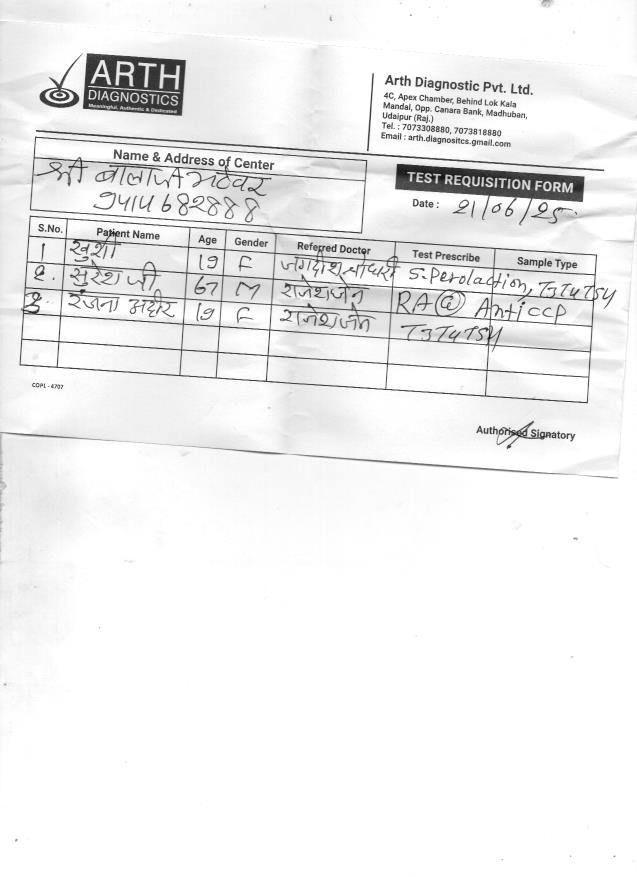 ARTH
DIAGNOSTICS
Meaningful, Authentic & Dedicated
Arth Diagnostic Pvt. Ltd.
4C, Apex Chamber, Behind Lok Kala
Mandal, Opp. Canara Bank, Madhuban,
Udaipur (Raj.)
Tel. : 7073308880, 7073818880
Email : arth.diagnositcs.gmail.com
Name & Address of Center
श्री बालाजी भटेवर
9414682888
TEST REQUISITION FORM
Date : 21/06/25
S.No. Patient Name Age Gender Referred Doctor Test Prescribe Sample Type
1 खुशी 19 F जगदीश चौधरी S.Perolaction, T3T4TSH
2. सुरेश जी 67 M राजेश जैन RA(Q) Anti CCP
3. रंजना अहीर 19 F राजेश जैन T3T4TSH
CDPL - 4707
Authorised Signatory